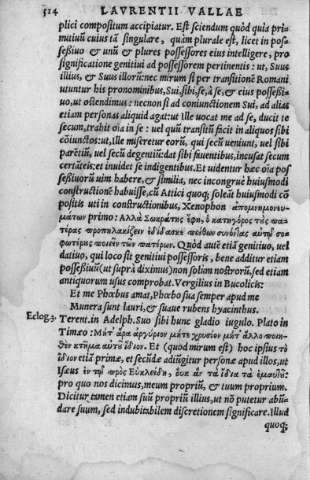 514 LAVRENTII VALLAE
plici compositum accipiatur. Est sciendum quòd quia pri-
mitiuū cuius tā singulare, quim plurale est, licet in pos-
seßiuo & unū & plures possessores eius intelligere, pro
significatione genitiui ad possessorem pertinentis: ut, Suus
illius, & Suus illorū: nec mirum si per transitionē Romani
utuntur his pronominibus, Sui, sibi, se, à se, & eius possessi-
uo, ut ostendimus: necnon si ad coniunctionem Sui, ad alias
etiam personas aliquid agat: ut Ille uocat me ad se, ducit te
secum, trahit oīa in se: uel quū transitū facit in aliquos sibi
cōiunctos: ut, Ille miseretur eorū, qui secū ueniunt, uel sibi
parētiū, uel secū degentiū: dat sibi fauentibus, incusat secum
certātes: et inuidet se indigentibus. Et uidentur hæc oīa pos
seßiuorū uim habere, & similia, nec incongruè huiusmodi
constructionē habuisse, cū Attici quoq; soleāt huiusmodi cō
positis uti in constructionibus, Xenophon ἀπομνημονευ-
μάτων primo: Ἀλλὰ Σωκράτης ἔφη, ὁ κατήγορος τοὺς πα-
τέρας προπηλακίζειν ἐδίδασκε πείθων συνόντας αὐτῷ σο-
φωτέρους ποιεῖν τῶν πατέρων. Quòd autē etiā genitiuo, uel
datiuo, qui loco sit genitiui possessoris, bene additur etiam
possessiuū (ut suprà diximus) non solùm nostrorū, sed etiam
antiquorum usus comprobat. Vergilius in Bucolicis:
Et me Phœbus amat, Phœbo sua semper apud me
Munera sunt lauri, & suaue rubens hyacinthus.
Eclog. 3. Terent. in Adelph. Suo sibi hunc gladio iugulo. Plato in
Timæo: Μήτ' ἄρα ἀργύριον μήτε χρυσίον μήτ' ἄλλο ποιή-
σην κτῆμα αὐτοῦ ἴδιον. Et (quod mirum est) hoc ipsius τὸ
ἴδιον etiā primæ, et secūdæ adiūgitur personæ apud illos, ut
Isæus ἐν τῷ πρὸς Εὐκλείδην, οὐκ ἂν τὰ ἴδια τὰ ἐμαυτοῦ:
pro quo nos dicimus, meum propriū, & tuum proprium.
Dicitur tamen etiam suū propriū illius, ut nō putetur abū-
dare suum, sed indubitabilem discretionem significare. Illud
quoq;